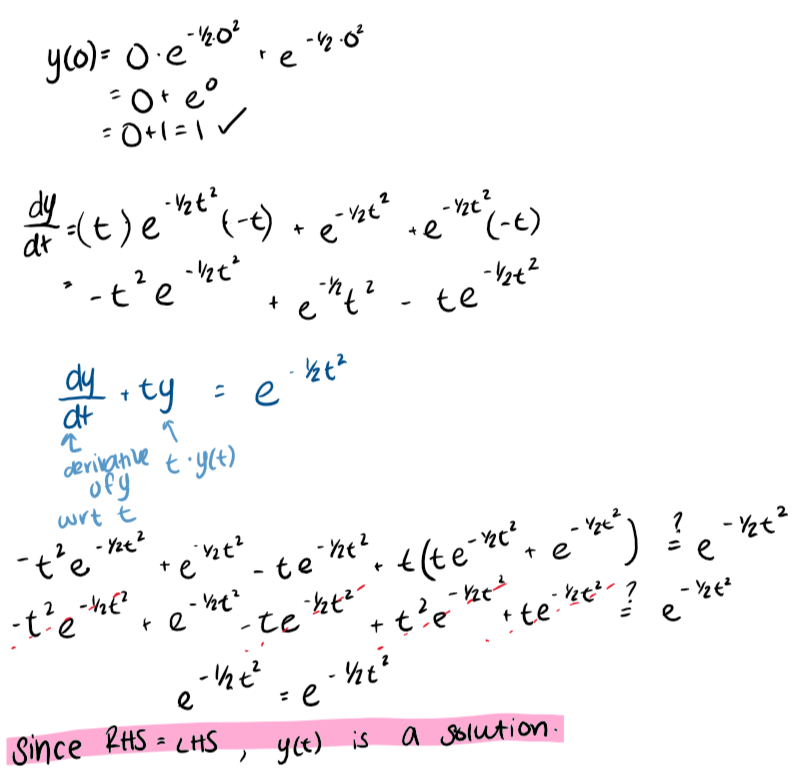 y(0)= 0·e^{-½·0²} + e^{-½·0²}
= 0+ e⁰
= 0+1=1 ✓
dy/dt =(t)e^{-½t²}(-t) + e^{-½t²} +e^{-½t²}(-t)
= -t²e^{-½t²} + e^{-½}t² - te^{-½t²}
dy/dt + ty = e^{-½t²}
↑ ↑
derivative t·y(t)
of y
wrt t
-t²e^{-½t²} + e^{½t²} - te^{-½t²} + t(te^{-½t²} + e^{-½t²}) ?= e^{-½t²}
-t²e^{-½t²} + e^{-½t²} -te^{-½t²} + t²e^{-½t²} +te^{-½t²} ?= e^{-½t²}
e^{-½t²} = e^{-½t²}
Since RHS = LHS , y(t) is a solution.